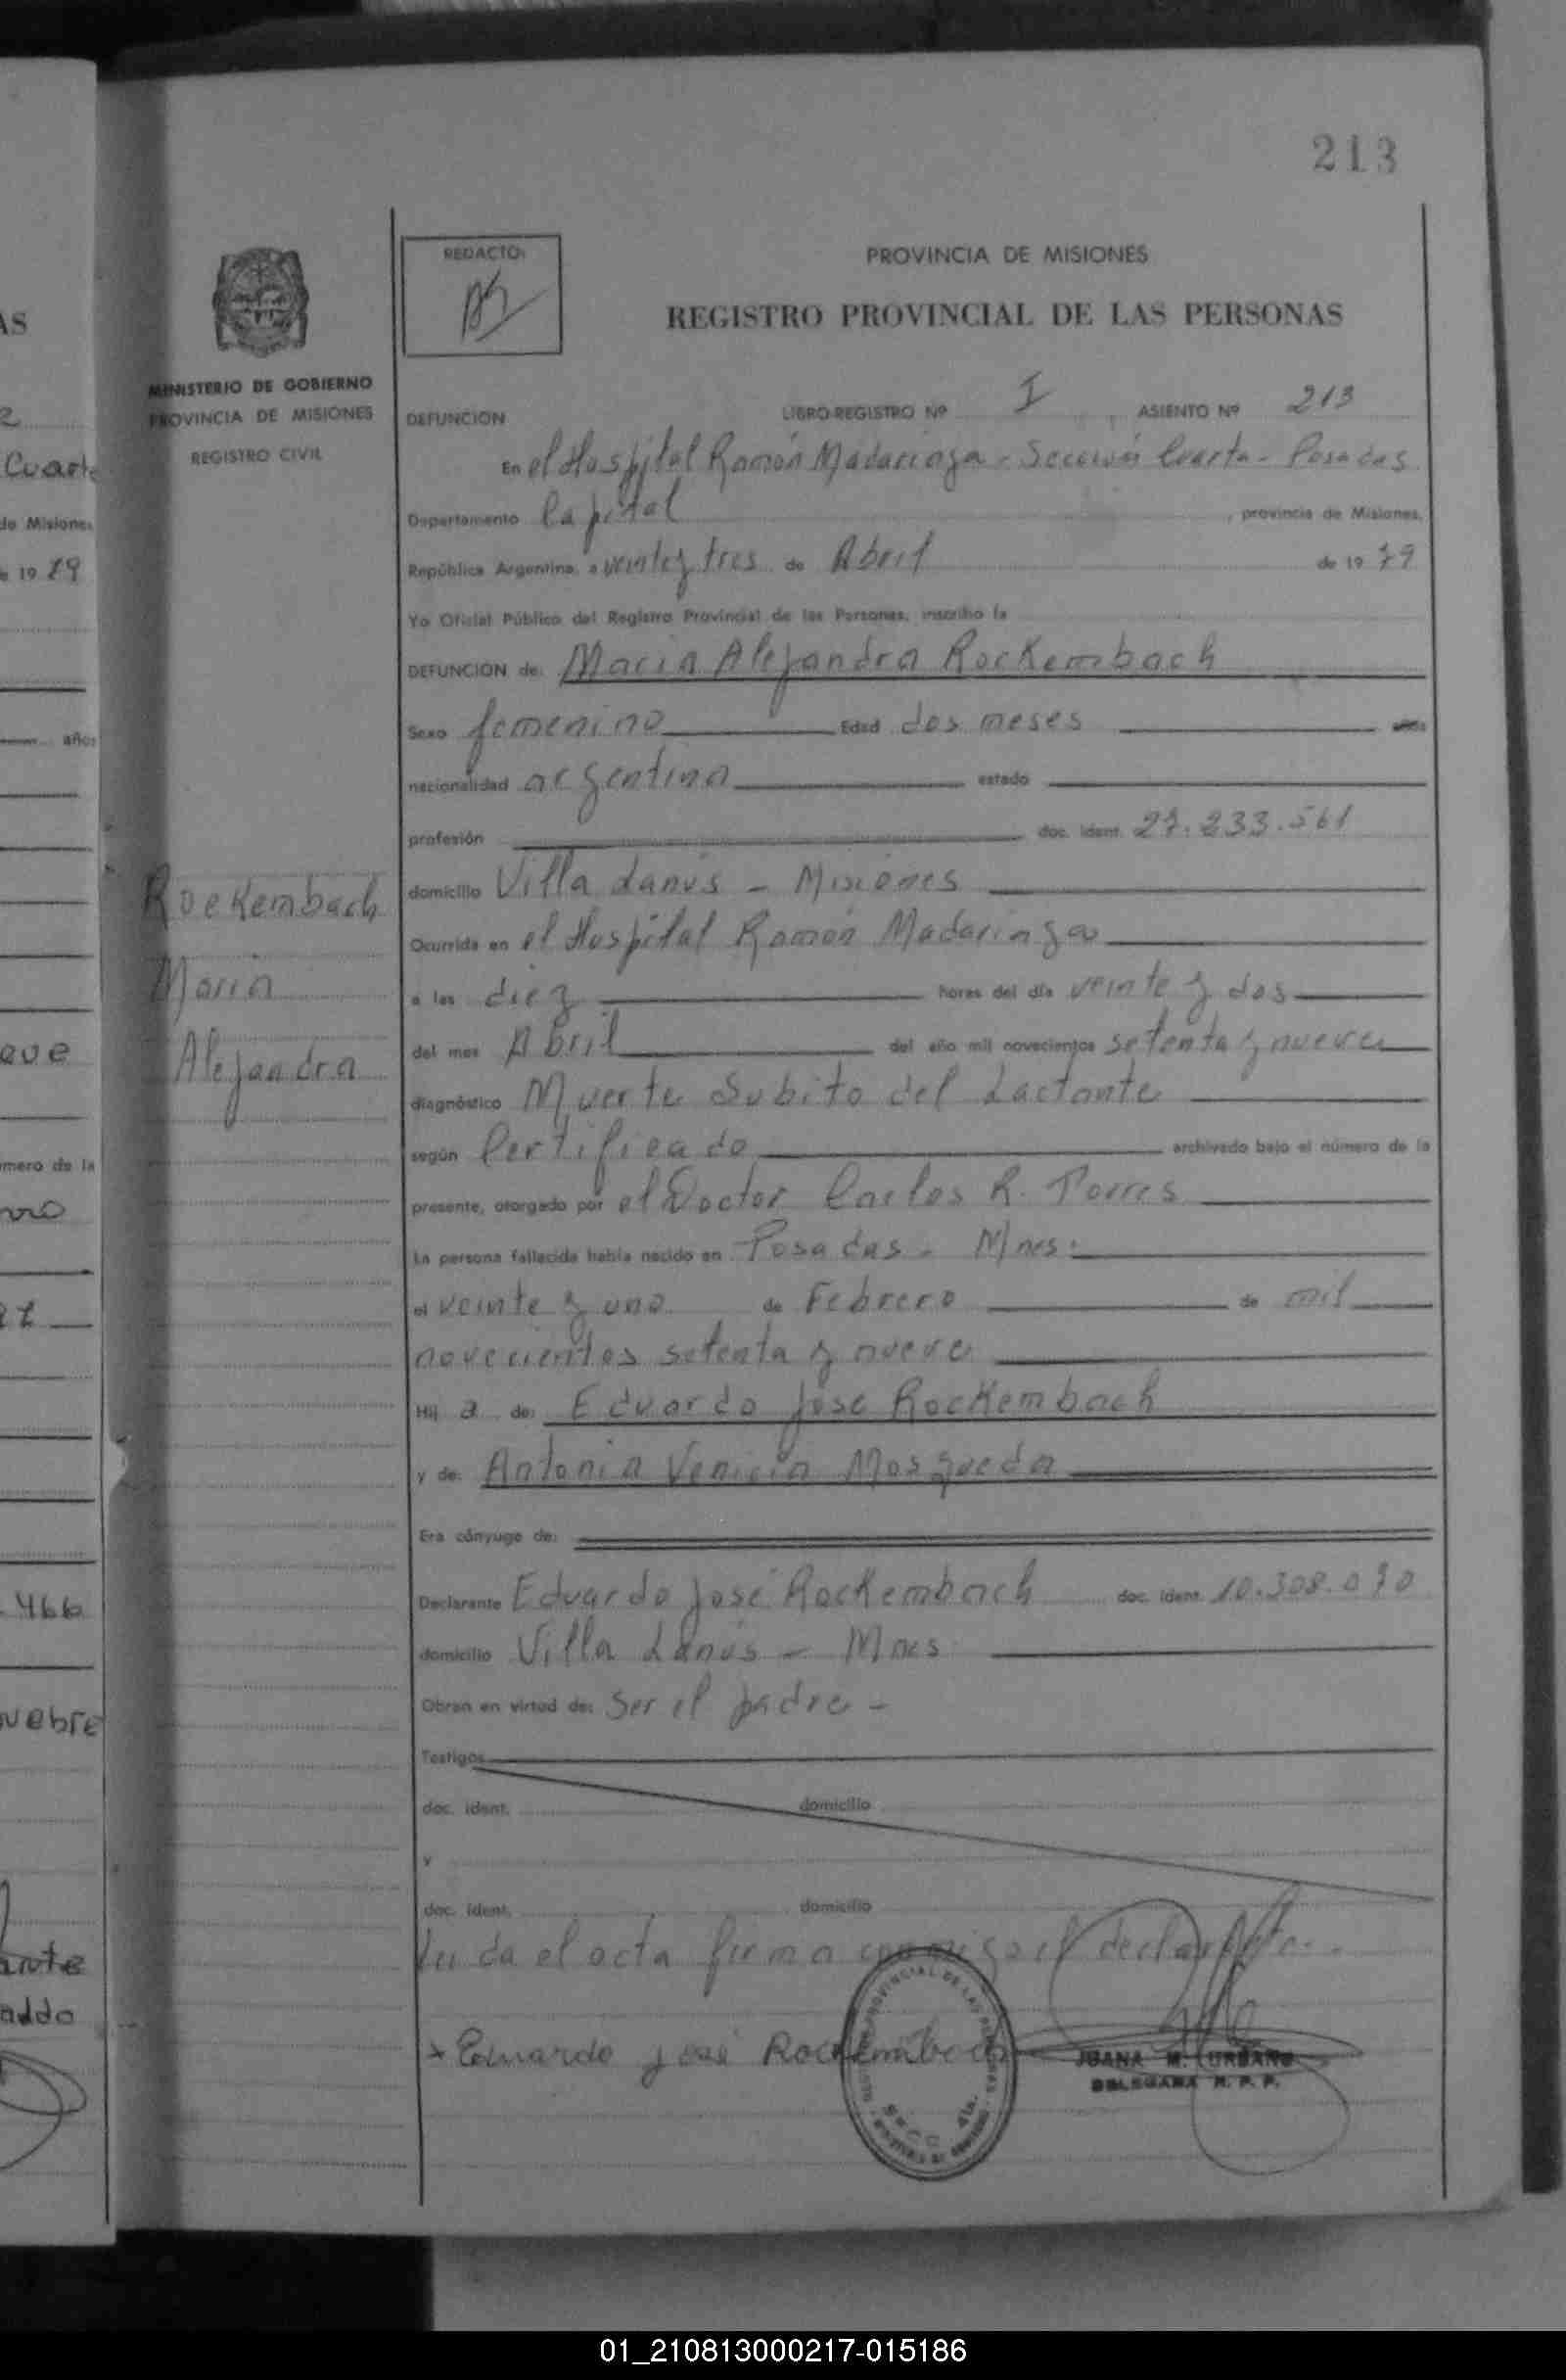 213
REDACTO:
PROVINCIA DE MISIONES
REGISTRO PROVINCIAL DE LAS PERSONAS
MINISTERIO DE GOBIERNO
PROVINCIA DE MISIONES
REGISTRO CIVIL
DEFUNCION LIBRO-REGISTRO Nº I, ASIENTO Nº 213
En el Hospital Ramón Madariaga - Sección Cuarta - Posadas
Departamento Capital, provincia de Misiones,
República Argentina, a veinte y tres de Abril de 1979
Yo Oficial Público del Registro Provincial de las Personas, inscribo la
DEFUNCION de: Maria Alejandra Rockembach
Sexo femenino Edad dos meses
nacionalidad argentina estado
profesión doc. ident. 27.233.561
domicilio Villa Lanús - Misiones
Ocurrida en el Hospital Ramón Madariaga
a las diez horas del día veinte y dos
del mes Abril del año mil novecientos setenta y nueve
diagnóstico Muerte Subito del Lactante
según Certificado archivado bajo el número de la
presente, otorgado por el Doctor Carlos R. Torres
La persona fallecida había nacido en Posadas - Mnes.
el veinte y uno de Febrero de mil
novecientos setenta y nueve
Hij a de: Eduardo José Rockembach
y de: Antonia Venicia Mosqueda
Era cónyuge de:
Declarante Eduardo José Rockembach doc. ident. 10.308.070
domicilio Villa Lanús - Mnes
Obran en virtud de: Ser el padre -
Testigos
doc. ident. domicilio
y
doc. ident. domicilio
Leida el acta firma conmigo el declarante.
x Eduardo José Rockembach
JUANA M. URBANO
DELEGADA R. P. P.
Rockembach
Maria
Alejandra
AS
Cuarta
de Misiones
e 19 79
años
eve
mero de la
466
ante
01_210813000217-015186